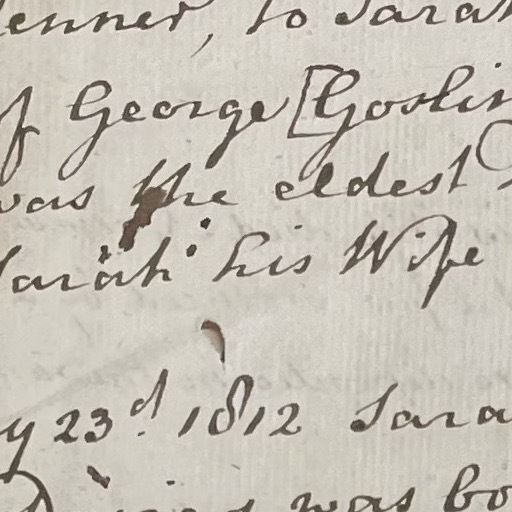 enner, to Sarah
of George [Goslin
was the eldest
Sarah his Wife
y 23d. 1812 Sara
was bo